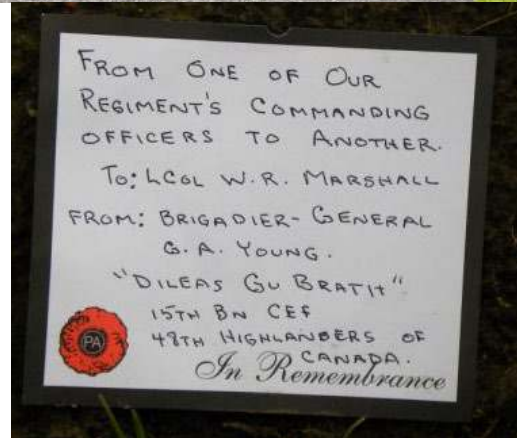 FROM ONE OF OUR
REGIMENT'S COMMANDING
OFFICERS TO ANOTHER.
TO: LCOL W.R. MARSHALL
FROM: BRIGADIER-GENERAL
G.A. YOUNG.
"DILEAS GU BRATH"
15TH BN CEF
48TH HIGHLANDERS OF
CANADA.
PA
In Remembrance